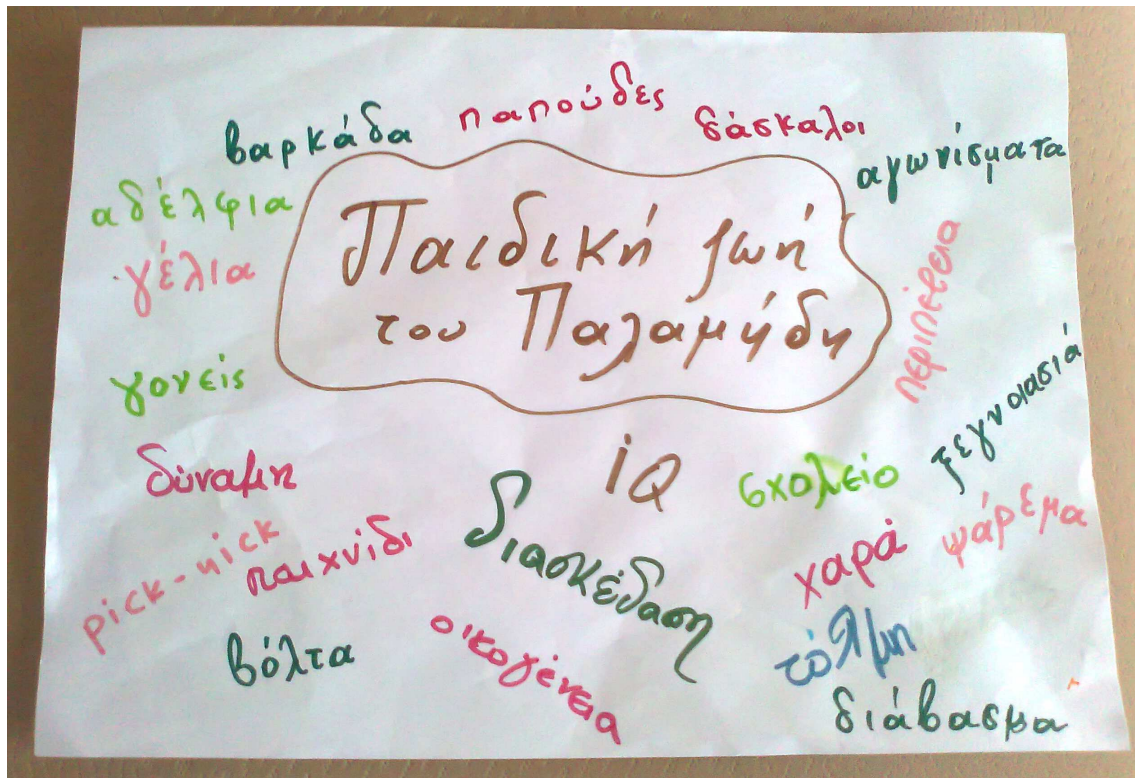 βαρκάδα
παπούδες
δάσκαλοι
αγωνίσματα
αδέλφια
γέλια
Παιδική ζωή
του Παλαμήδη
περιπέτεια
γονείς
ξεγνοιασιά
δύναμη
iQ
σχολείο
ψάρεμα
pick-nick
παιχνίδι
διασκέδαση
χαρά
βόλτα
οικογένεια
τόλμη
διάβασμα